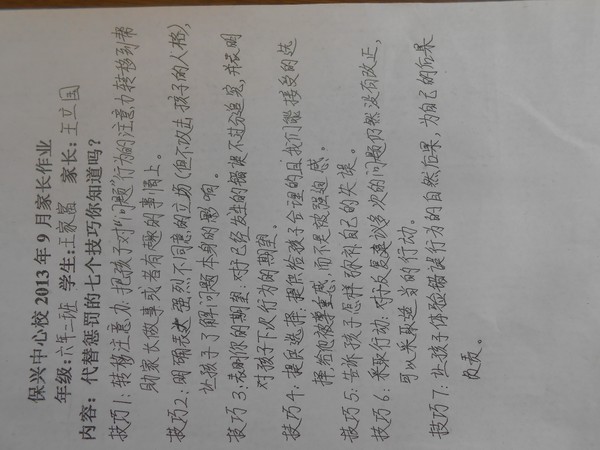 保兴中心校 2013 年 9 月家长作业
年级:六年二班 学生:王家富 家长:王立国
内容：代替惩罚的七个技巧你知道吗？
技巧1:转移注意力:把孩子对“问题”行为的注意力转移到帮
助家长做事或者有趣的事情上。
技巧2:明确表达强烈不同意的立场(但不攻击孩子的人格),
让孩子了解问题本身的影响。
技巧3:表明你的期望:对已经发生的错误不过分追究,并表明
对孩子下次行为的期望。
技巧4:提供选择:提供给孩子合理的且我们能接受的选
择,给他被尊重感,而不是被强迫感。
技巧5:告诉孩子怎样弥补自己的失误。
技巧6:采取行动:对反复建议多次的问题仍然没有改正,
可以采取适当的行动。
技巧7:让孩子体验错误行为的自然后果,为自己的后果
负责。